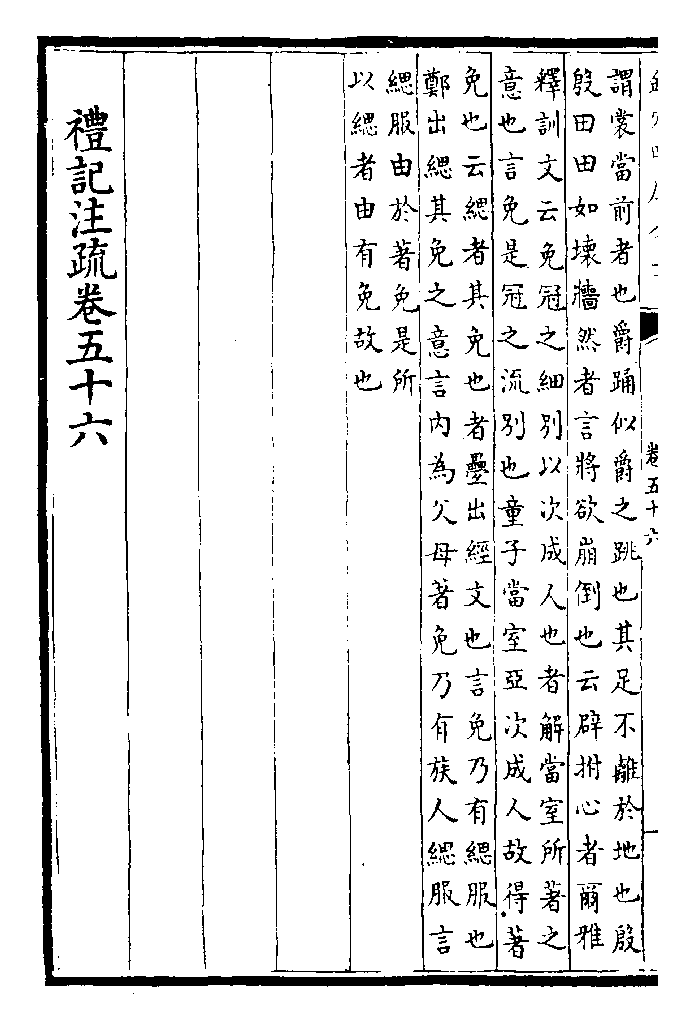 謂裳當前者也爵踊似爵之跳也其足不離於地也殷
殷田田如壊牆然者言將欲崩倒也云辟拊心者爾雅
釋訓文云免冠之細別以次成人也者解當室所著之
意也言免是冠之流别也童子當室亞次成人故得著
免也云緦者其免也者疊出經文也言免乃有緦服也
鄭出緦其免之意言内為父母著免乃有族人緦服言
緦服由於著免是所
以緦者由有免故也
禮記注疏卷五十六
卷五十六